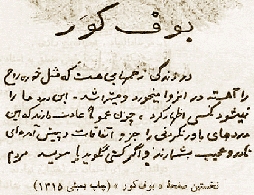 بوف کور
در زندگی زخمهایی هست که مثل خوره روح
را آهسته در انزوا میخورد و میتراشد. این دردها را
نمیشود بکسی اظهار کرد، چون عموماً عادت دارند که این
دردهای باورنکردنی را جزو اتفاقات و پیش آمدهای
نادر و عجیب بشمارند و اگر کسی بگوید یا بنویسد مردم
نخستین صفحهٔ «بوف کور» (چاپ بمبئی ۱۳۱۵)